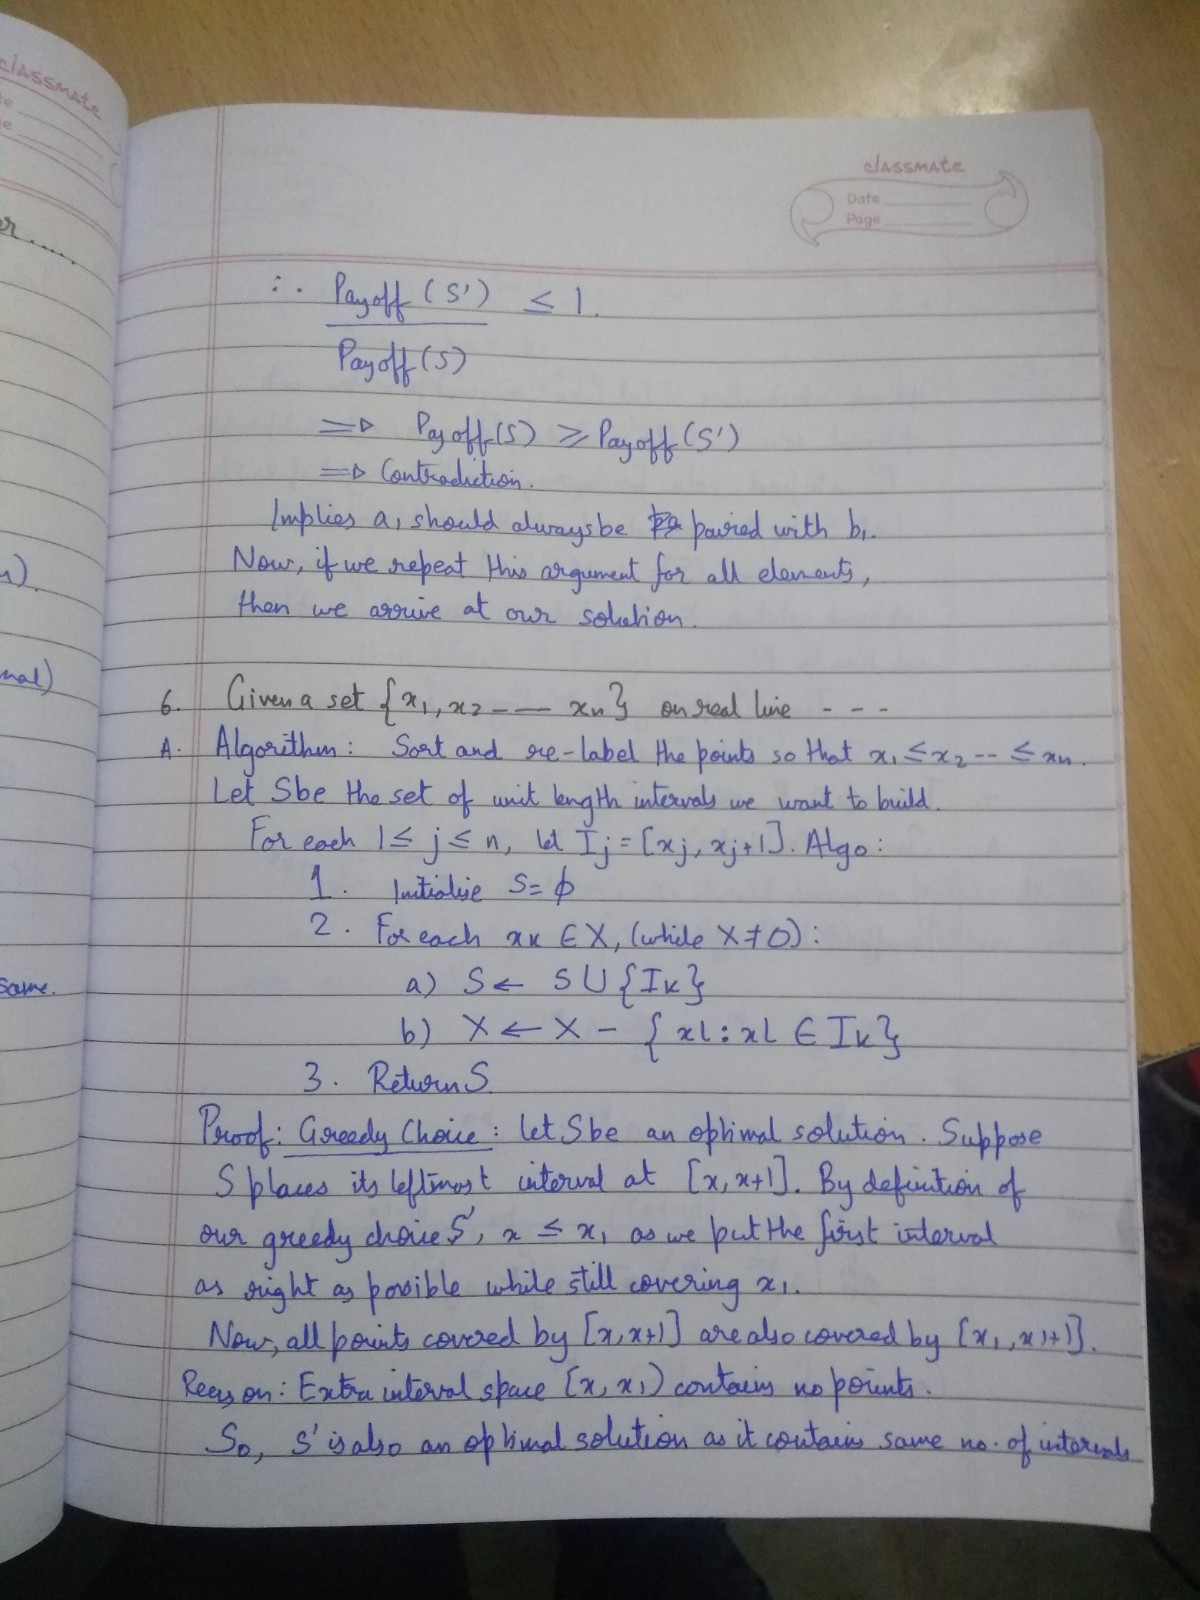 classmate
classmate
Date
Page
∴ Payoff (S') ≤ 1.
Payoff (S)
⇒ Payoff(S) ≥ Payoff(S')
⇒ Contradiction.
Implies a₁ should always be paired with b₁.
Now, if we repeat this argument for all elements,
then we arrive at our solution.
6. Given a set {x₁, x₂ -- — xn} on real line - - -
A. Algorithm: Sort and re-label the points so that x₁ ≤ x₂ -- ≤ xn.
Let S be the set of unit length intervals we want to build.
For each 1 ≤ j ≤ n, let Ij = [xj, xj+1]. Algo:
1. Initialise S = ϕ
2. For each xk ∈ X, (while X ≠ 0):
a) S ← S ∪ {Ik}
b) X ← X - {xl : xl ∈ Ik}
3. Return S.
Proof: Greedy Choice: let S be an optimal solution. Suppose
S places its leftmost interval at [x, x+1]. By definition of
our greedy choice S', x ≤ x₁ as we put the first interval
as right as possible while still covering x₁.
Now, all points covered by [x, x+1] are also covered by [x₁, x₁+1].
Reason: Extra interval space [x, x₁) contains no points.
So, S' is also an optimal solution as it contains same no. of intervals
er.....
nal)
same.